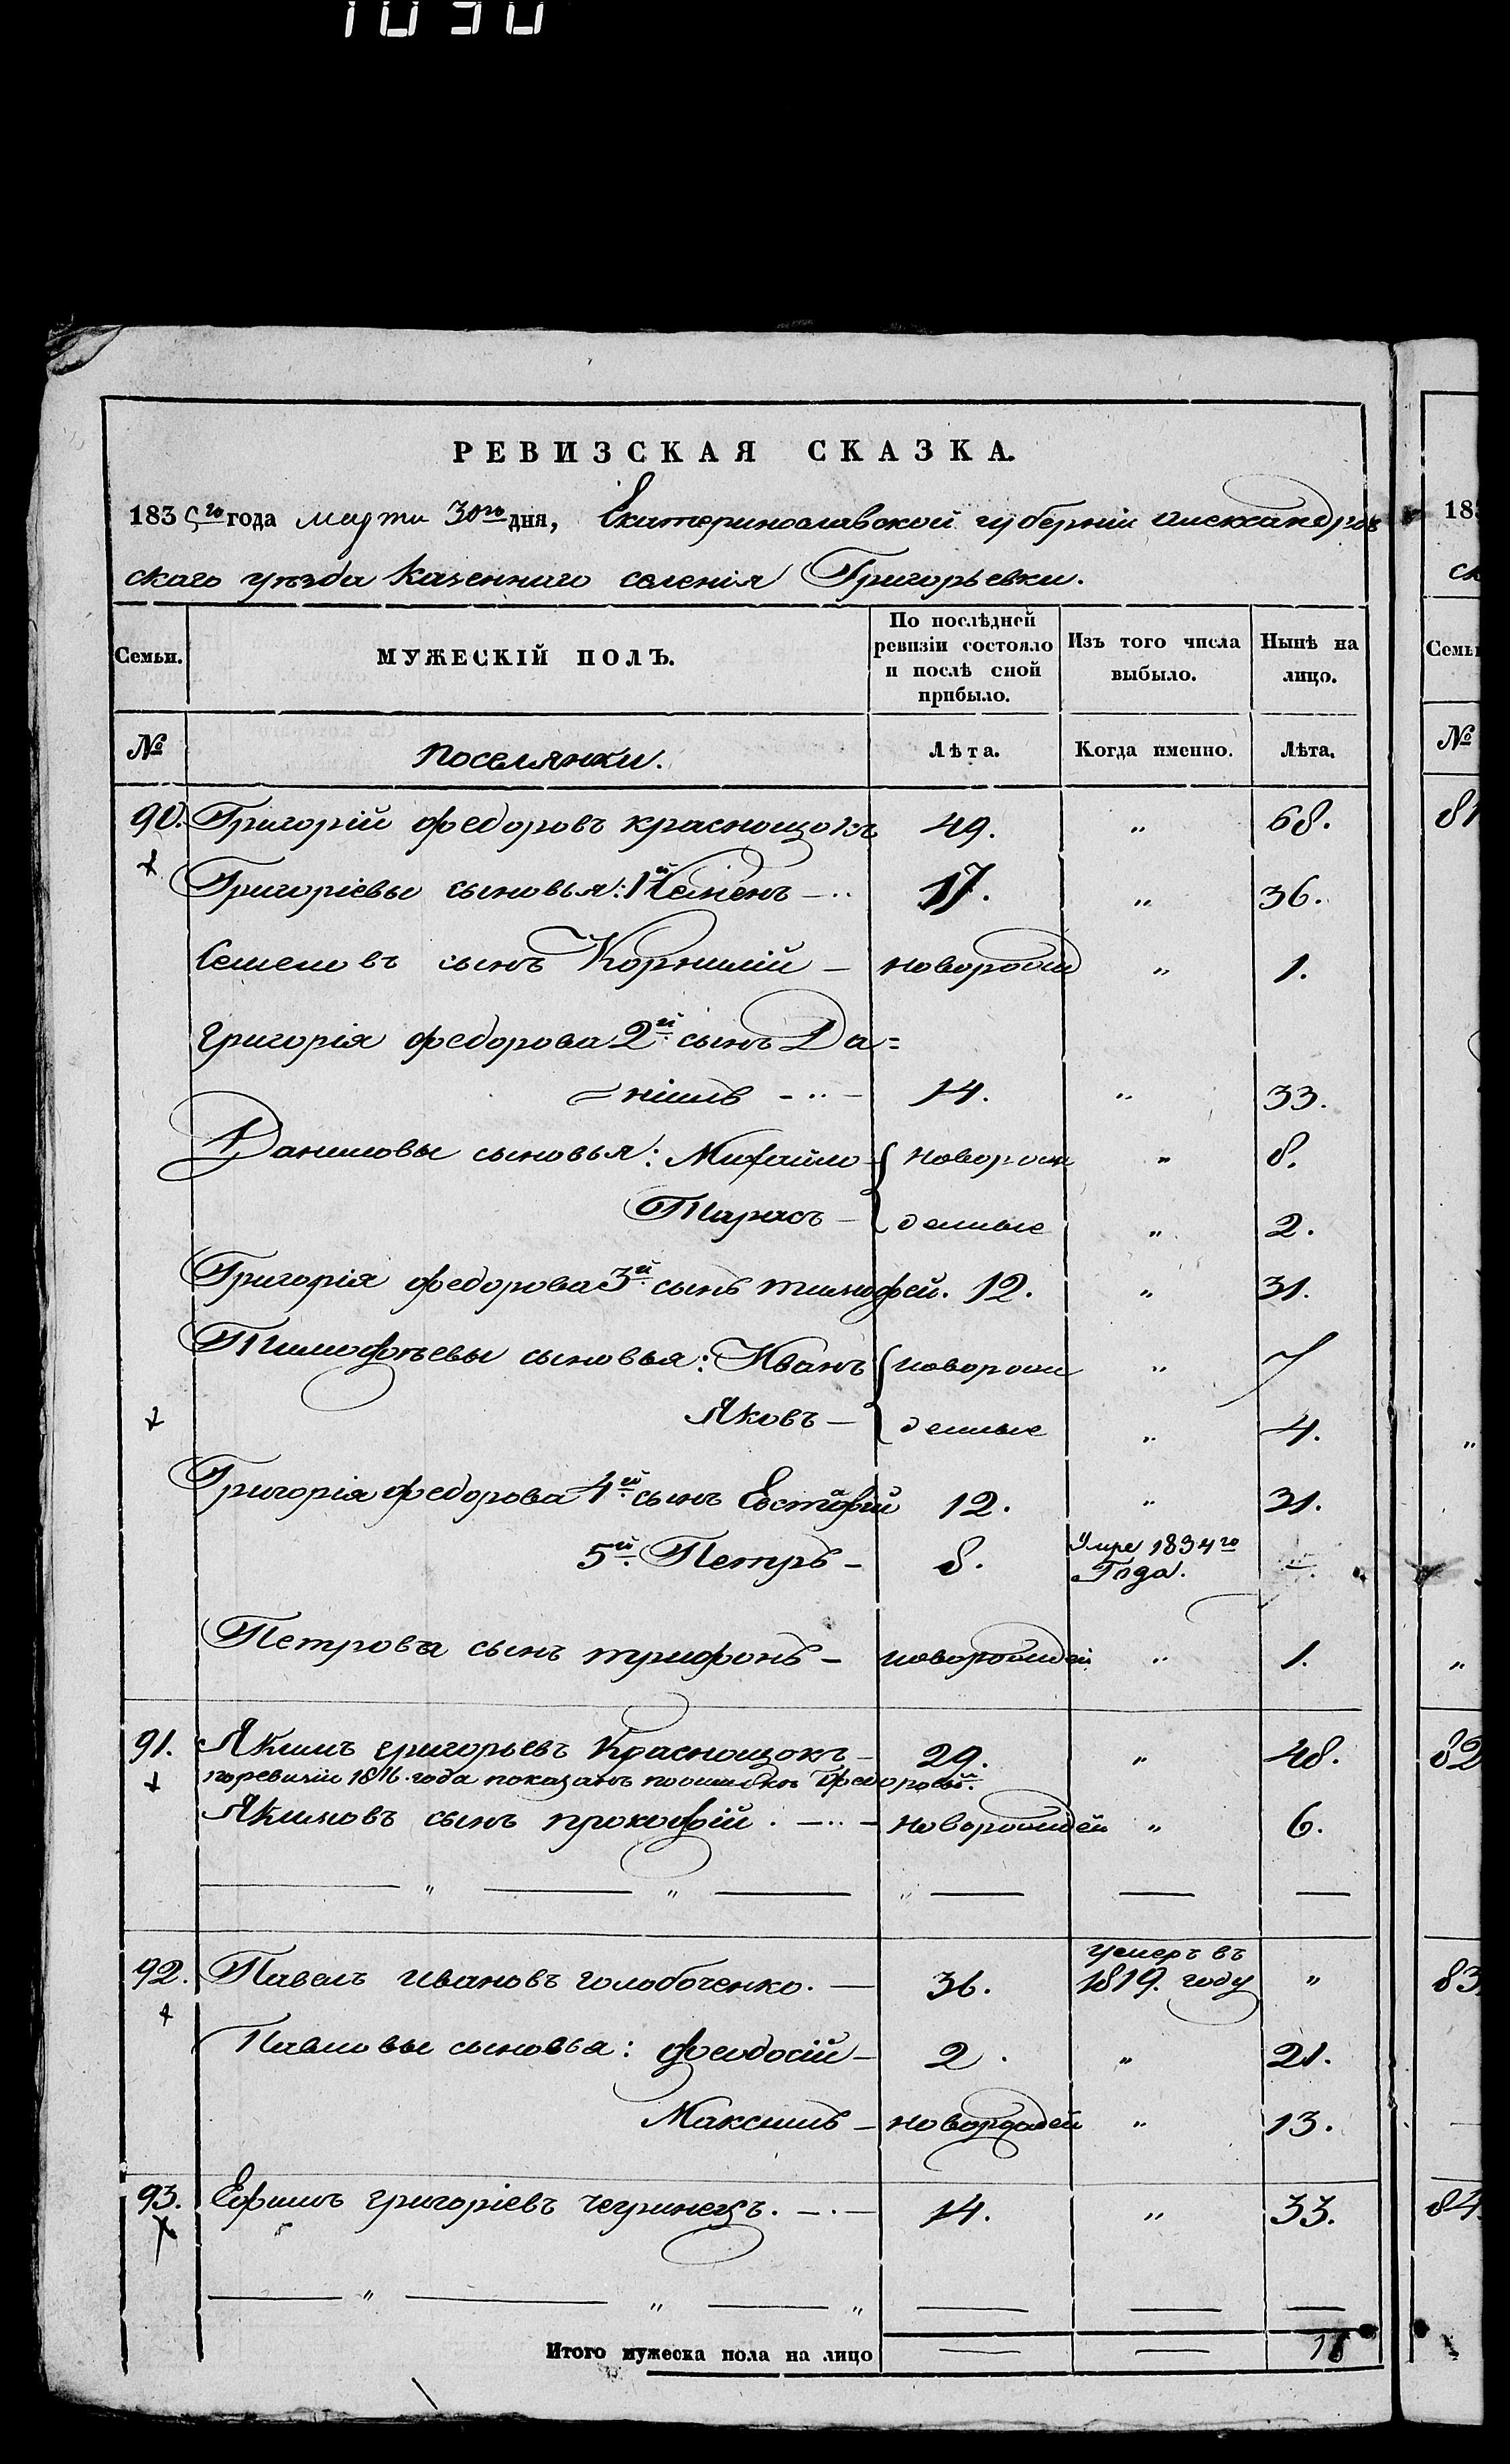 1030
РЕВИЗСКАЯ СКАЗКА.
1835го года марта 30го дня, Екатеринославской губерніи Александров
скаго уезда казеннаго селенія Григорьевки.
Семьи. МУЖЕСКІЙ ПОЛЪ. По послѣдней ревизіи состояло и послѣ оной прибыло. Изъ того числа выбыло. Нынѣ на лицо.
№ поселянки. Лѣта. Когда именно. Лѣта.
90. Григорій федоровъ краснощокъ 49. " 68.
Григоріевы сыновья: 1й Семенъ 17. " 36.
Семеновъ сынъ Корнилій новорожд " 1.
Григорія федорова 2й сынъ Да=
=ніилъ 14. " 33.
Даниловы сыновья: Михайло новорож " 8.
Тарасъ денные " 2.
Григорія федорова 3й сынъ тимофей. 12. " 31.
Тимофѣевы сыновья: Иванъ новорож " 7
Яковъ денные " 4.
Григорія федорова 4й сынъ Евстафій 12. " 31.
5й Петръ 8. Умре 1834го Года.
Петрова сынъ трифонъ новорожден " 1.
91. Якимъ григорьевъ Краснощокъ 29. " 48.
поревизіи 1816. года показанъ поошибкѣ Федоровъ.
Якимовъ сынъ прокофій. новорожден " 6.
92. Павелъ ивановъ голобоченко. 36. умеръ въ 1819. году "
Павловы сыновья: феодосій 2. " 21.
Максимъ новорожден " 13.
93. Ефимъ григоріевъ чегринецъ. 14. " 33.
Итого мужеска пола на лицо 18
183
ск
Семьи
№
81
82
83.
84.